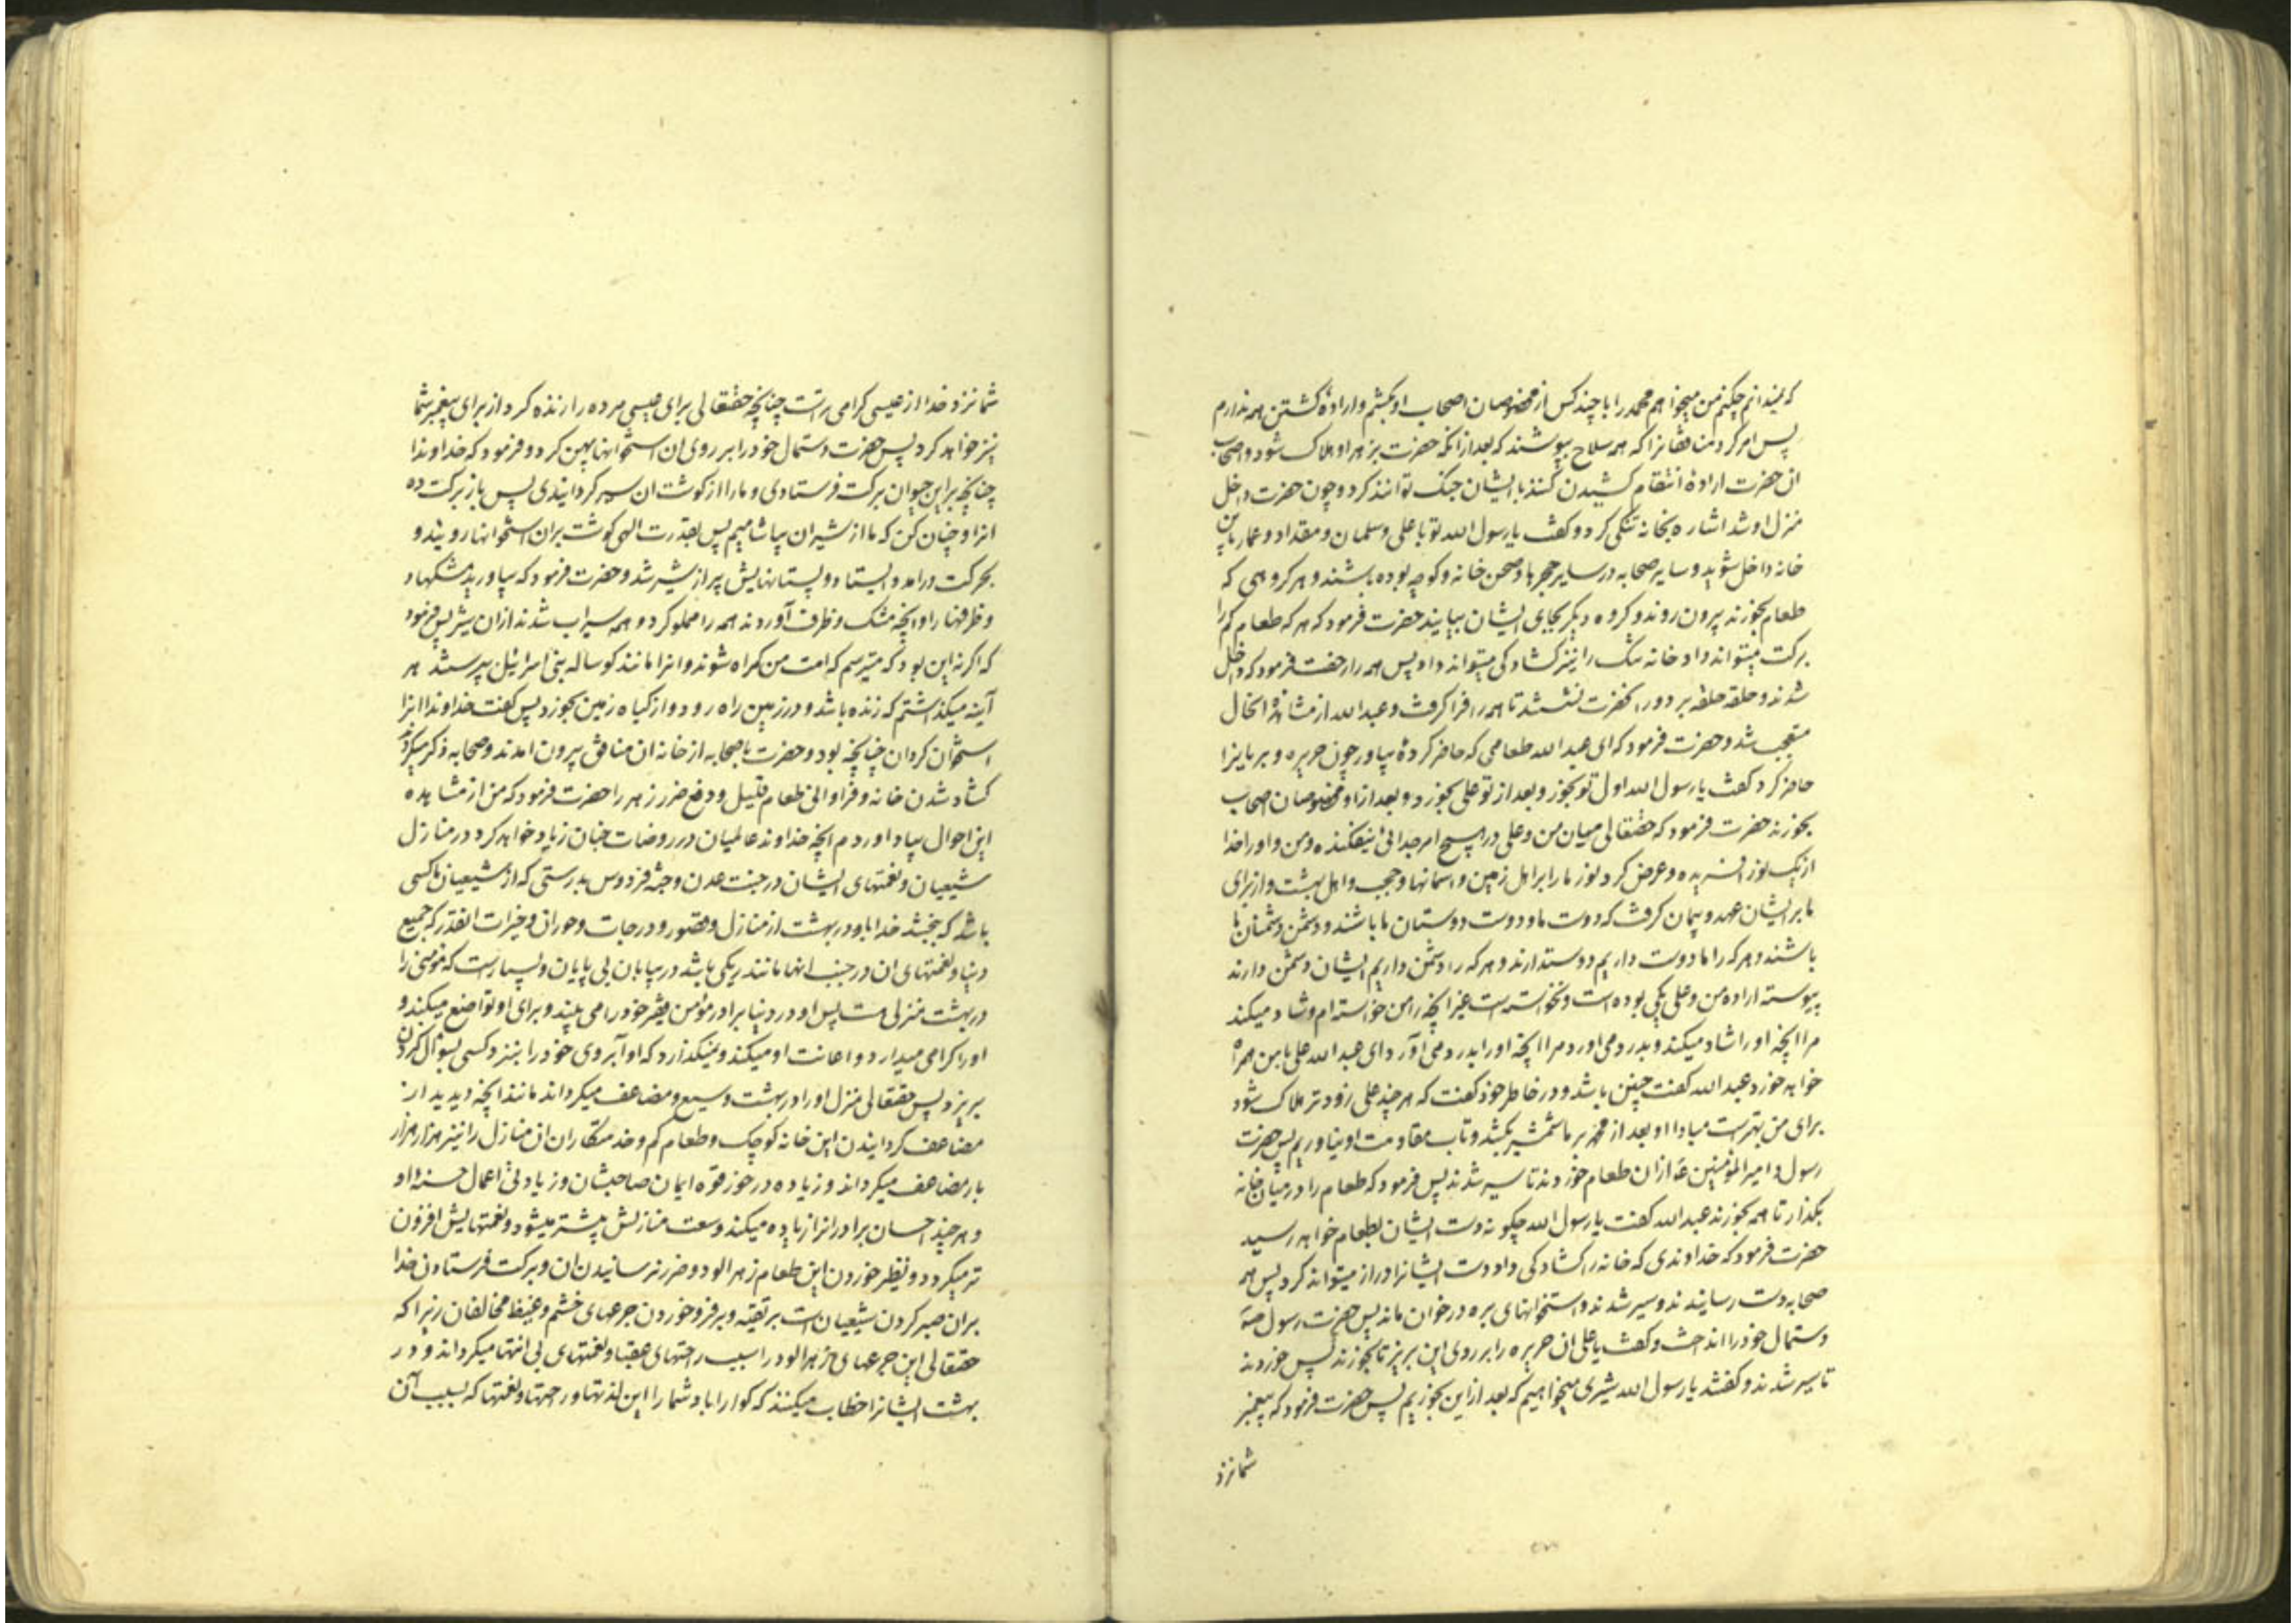 که نمیدانم چکنم من میخواهم محمد را با چند کس از مخصوصان اصحاب او بکشم و ارادهٔ کشتن همه ندارم
پس امر کرد منافقانرا که همه سلاح بپوشند که بعد از آنکه حضرت بزهر او هلاک شود و اصحاب
ان حضرت ارادهٔ انتقام کشیدن کنند با ایشان جنک توانند کرد و چون حضرت داخل
منزل او شد اشاره بخانه تنکی کرد و کفت یا رسول الله تو با علی و سلمان و مقداد و عمار باین
خانه داخل شوید و سایر صحابه در سایر حجرها و صحن خانه و کوچه بوده باشند و هر کروهی که
طعام بخورند بیرون روند و کروه دیکر بجای ایشان بیایند حضرت فرمود که هر که طعام کم را
برکت میتواند داد خانه تنک را نیز کشادکی میتواند داد پس همه را رخصت فرمود که داخل
شدند و حلقه حلقه بر دور انحضرت نشستند تا همه را فرا کرفت و عبد الله از مشاهده انحال
متعجب شد و حضرت فرمود که ای عبد الله طعامی که حاضر کردهٔ بیاور چون حریره و بریانرا
حاضر کرد کفت یا رسول الله اول تو بخور و بعد از تو علی بخورد و بعد از او مخصوصان اصحاب
بخورند حضرت فرمود که حقتعالی میان من و علی در هیچ امر جدائی نیفکنده و من و او را خدا
از یک نور افریده و عرض کرد نور ما را بر اهل زمین و اسمانها و حجب و اهل بهشت و از برای
ما بر ایشان عهد و پیمان کرفت که دوست ما و دوست دوستان ما باشند و دشمن دشمنان ما
باشند و هر که را ما دوست داریم دوستدارند و هر که را دشمن داریم ایشان دشمن دارند
پیوسته اراده من و علی یکی بوده است و نخواسته است غیر انچه را من خواسته ام و شاد میکند
مرا انچه او را شاد میکند و بدرد می اورد مرا انچه او را بدرد می آورد ای عبد الله علی با من همراه
خواهد خورد عبد الله کفت چنین باشد و در خاطر خود کفت که هر چند علی زودتر هلاک شود
برای من بهتر است مبادا او بعد از محمد بر ما شمشیر بکشد و تاب مقاومت او نیاوریم پس حضرت
رسول و امیر المؤمنین ع از ان طعام خوردند تا سیر شدند پس فرمود که طعام را در میان خانه
بکذار تا همه بخورند عبد الله کفت یا رسول الله چکونه دست ایشان بطعام خواهد رسید
حضرت فرمود که خداوندی که خانه را کشادکی داد دست ایشانرا دراز میتواند کرد پس همه
صحابه دست رسانیدند و سیر شدند و استخوانهای بره در خوان ماند پس حضرت رسول ص
دستمال خود را انداخت و کفت یا علی ان حریره را بر روی این بریز تا بخورند پس خوردند
تا سیر شدند و کفتند یا رسول الله شیری میخواهیم که بعد از این بخوریم پس حضرت فرمود که پیغمبر
شما نزد
شما نزد خدا از عیسی کرامی تر است چنانچه حقتعالی برای عیسی مرده را زنده کرد از برای پیغمبر شما
نیز خواهد کرد پس حضرت دستمال خود را بر روی ان استخوانها پهن کرد و فرمود که خداوندا
چنانچه بر این حیوان برکت فرستادی و ما را از کوشت ان سیر کردانیدی پس باز برکت ده
انرا و چنان کن که ما از شیر ان بیاشامیم پس بقدرت الهی کوشت بر ان استخوانها رویید و
بحرکت درامد و ایستاد و پستانهایش پر از شیر شد و حضرت فرمود که بیاورید مشکها و
و ظرفها را و انچه مشک و ظرف آوردند همه را مملو کرد و همه سیراب شدند از ان شیر پس فرمود
که اکر نه این بود که میترسم که امت من کمراه شوند و انرا مانند کوساله بنی اسرائیل بپرستند هر
آینه میکذاشتم که زنده باشد و در زمین راه رود و از کیاه زمین بخورد پس کفت خداوندا انرا
استخوان کردان چنانچه بود و حضرت با صحابه از خانه ان منافق بیرون امدند و صحابه ذکر میکردند
کشاد شدن خانه و فراوانی طعام قلیل و دفع ضرر زهر را حضرت فرمود که من از مشاهده
این احوال بیاد اوردم انچه خداوند عالمیان در روضات جنان زیاد خواهد کرد در منازل
شیعیان و نعمتهای ایشان در جنت عدن و جنة فردوس بدرستی که از شیعیان ما کسی
باشد که بخشد خدا باو در بهشت از منازل و قصور و درجات و حوران و خیرات انقدر که جمیع
دنیا و نعمتهای ان در جنب انها مانند ریکی باشد در بیابان بی پایان و بسیار است که مؤمنی را
در بهشت منزلی هست پس او در دنیا برادر مؤمن فقیر خود را می بیند و برای او تواضع میکند و
او را کرامی میدارد و اعانت او میکند و نمیکذارد که او آبروی خود را بنزد کسی بسؤال کردن
بریزد پس حقتعالی منزل او را در بهشت وسیع و مضاعف میکرداند مانند انچه دیدید از
مضاعف کردانیدن این خانه کوچک و طعام کم و خدمتکاران ان منازل را نیز هزار هزار
بار مضاعف میکرداند و زیاده در خور قوه ایمان صاحبشان و زیادتی اعمال حسنهٔ او
و هر چند احسان برادرانرا زیاده میکند وسعت منازلش بیشتر میشود و نعمتهایش افزون
تر میکردد و نظیر خوردن این طعام زهر الود و ضرر نرسانیدن ان و برکت فرستادن خدا
بران صبر کردن شیعیان است بر تقیه و بر فرو خوردن جرعهای خشم و غیظ مخالفان زیرا که
حقتعالی این جرعهای زهر الود را سبب راحتهای عقبا و نعمتهای بی انتها میکرداند و در
بهشت ایشانرا خطاب میکنند که کوارا باد شما را این لذتها و رحمتها و نعمتها که بسبب آن